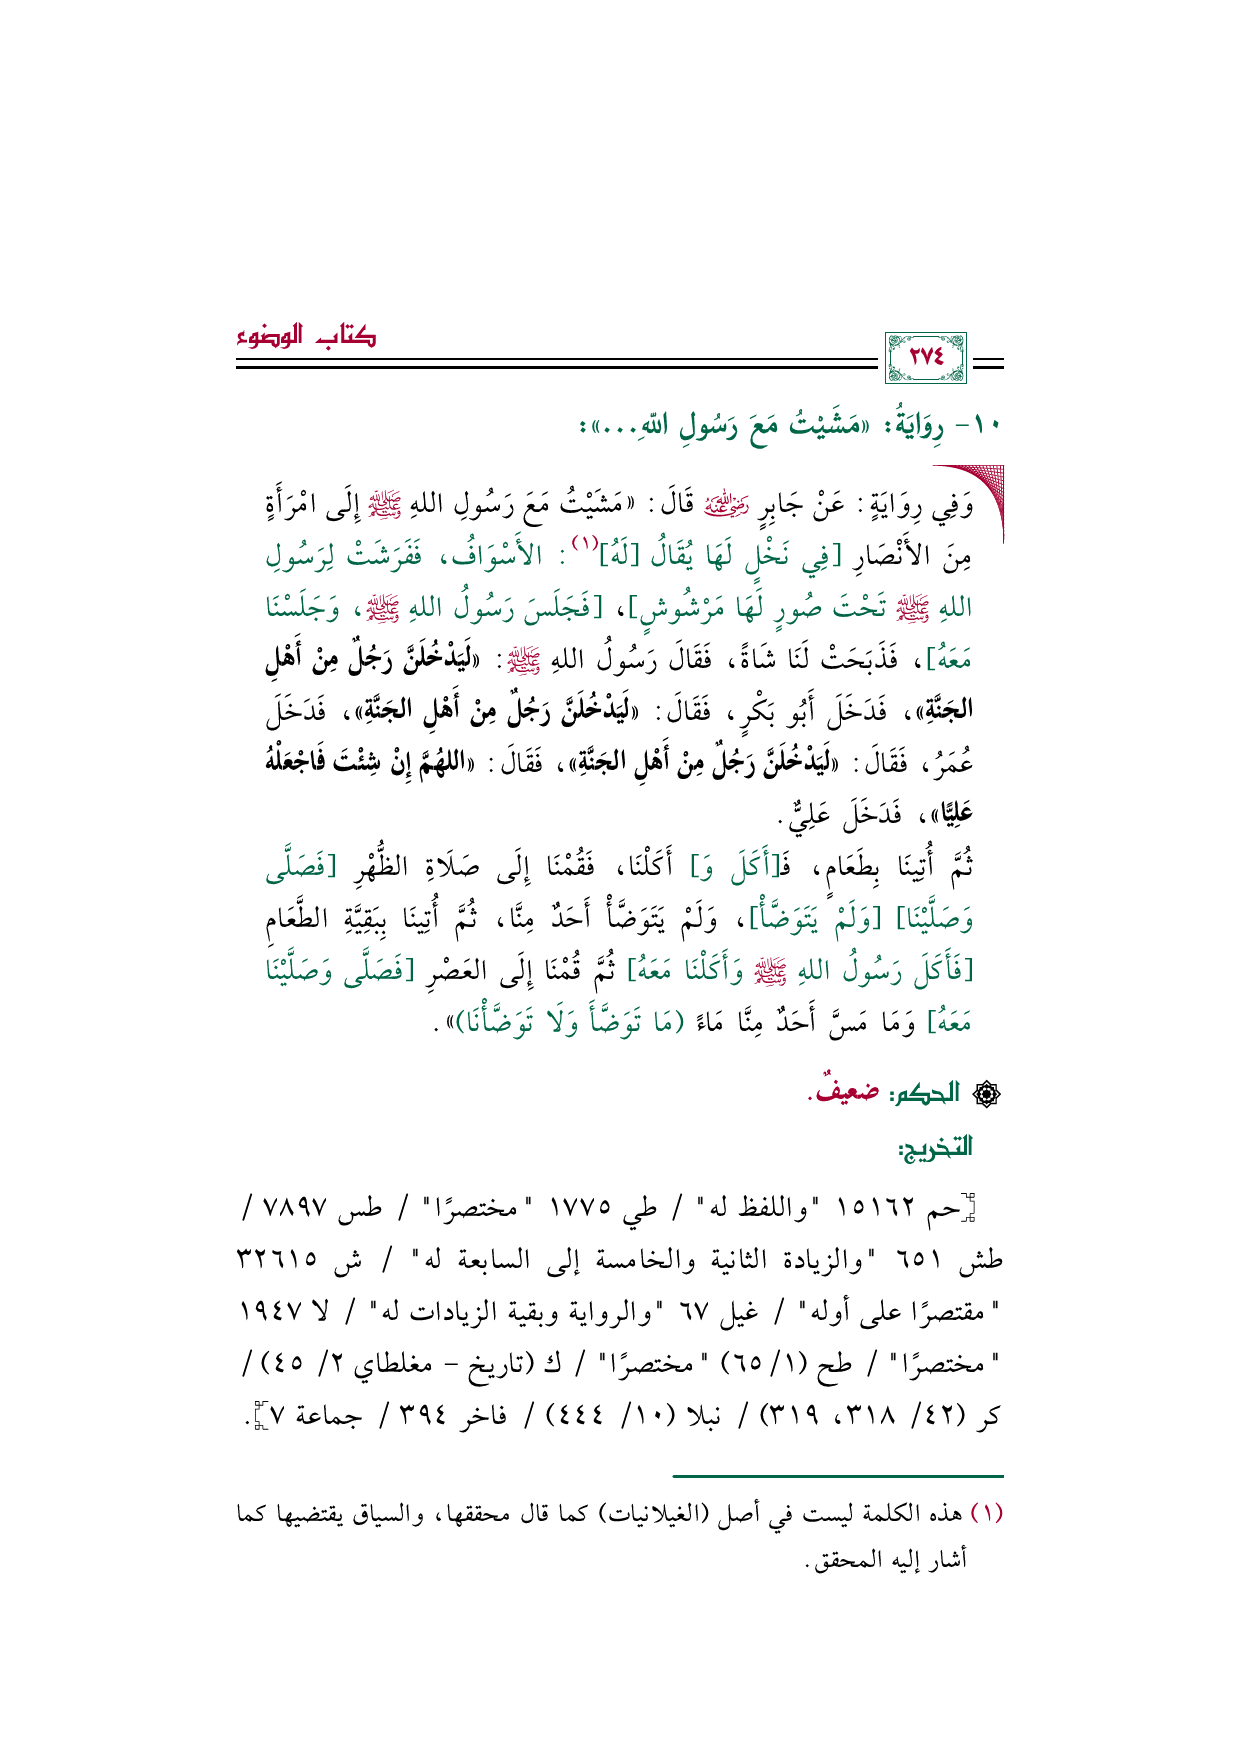 كتاب الوضوء
٢٧٤
١٠- رِوَايَةُ: «مَشَيْتُ مَعَ رَسُولِ اللهِ...»:
وَفِي رِوَايَةٍ: عَنْ جَابِرٍ رضي الله عنه قَالَ: «مَشَيْتُ مَعَ رَسُولِ اللهِ ﷺ إِلَى امْرَأَةٍ
مِنَ الأَنْصَارِ [فِي نَخْلٍ لَهَا يُقَالُ [لَهُ](١): الأَسْوَافُ، فَفَرَشَتْ لِرَسُولِ
اللهِ ﷺ تَحْتَ صُورٍ لَهَا مَرْشُوشٍ]، [فَجَلَسَ رَسُولُ اللهِ ﷺ، وَجَلَسْنَا
مَعَهُ]، فَذَبَحَتْ لَنَا شَاةً، فَقَالَ رَسُولُ اللهِ ﷺ: «لَيَدْخُلَنَّ رَجُلٌ مِنْ أَهْلِ
الجَنَّةِ»، فَدَخَلَ أَبُو بَكْرٍ، فَقَالَ: «لَيَدْخُلَنَّ رَجُلٌ مِنْ أَهْلِ الجَنَّةِ»، فَدَخَلَ
عُمَرُ، فَقَالَ: «لَيَدْخُلَنَّ رَجُلٌ مِنْ أَهْلِ الجَنَّةِ»، فَقَالَ: «اللهُمَّ إِنْ شِئْتَ فَاجْعَلْهُ
عَلِيًّا»، فَدَخَلَ عَلِيٌّ.
ثُمَّ أُتِينَا بِطَعَامٍ، فَـ[أَكَلَ وَ] أَكَلْنَا، فَقُمْنَا إِلَى صَلَاةِ الظُّهْرِ [فَصَلَّى
وَصَلَّيْنَا] [وَلَمْ يَتَوَضَّأْ]، وَلَمْ يَتَوَضَّأْ أَحَدٌ مِنَّا، ثُمَّ أُتِينَا بِبَقِيَّةِ الطَّعَامِ
[فَأَكَلَ رَسُولُ اللهِ ﷺ وَأَكَلْنَا مَعَهُ] ثُمَّ قُمْنَا إِلَى العَصْرِ [فَصَلَّى وَصَلَّيْنَا
مَعَهُ] وَمَا مَسَّ أَحَدٌ مِنَّا مَاءً (مَا تَوَضَّأَ وَلَا تَوَضَّأْنَا)».
الحكم: ضعيفٌ.
التخريج:
[حم ١٥١٦٢ "واللفظ له" / طي ١٧٧٥ "مختصرًا" / طس ٧٨٩٧ /
طش ٦٥١ "والزيادة الثانية والخامسة إلى السابعة له" / ش ٣٢٦١٥
"مقتصرًا على أوله" / غيل ٦٧ "والرواية وبقية الزيادات له" / لا ١٩٤٧
"مختصرًا" / طح (١/ ٦٥) "مختصرًا" / ك (تاريخ - مغلطاي ٢/ ٤٥) /
كر (٤٢/ ٣١٨، ٣١٩) / نبلا (١٠/ ٤٤٤) / فاخر ٣٩٤ / جماعة ٧].
(١) هذه الكلمة ليست في أصل (الغيلانيات) كما قال محققها، والسياق يقتضيها كما
أشار إليه المحقق.